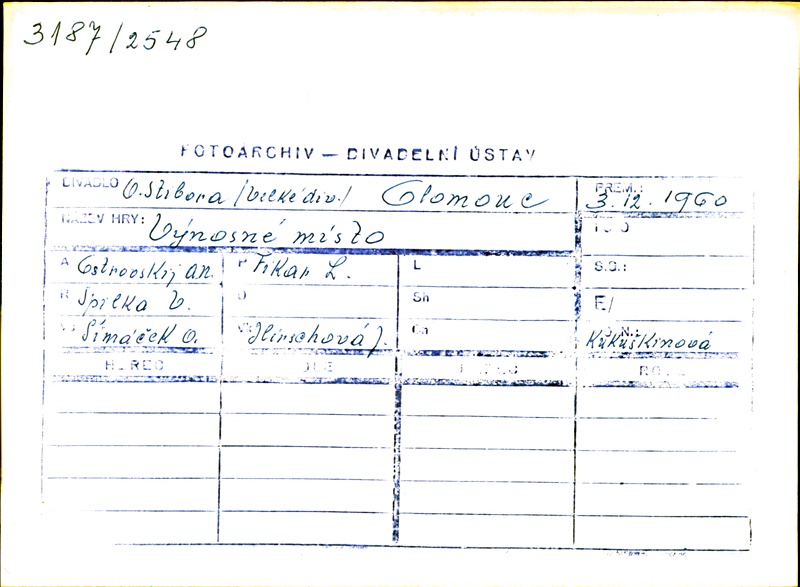 3187/2548
FOTOARCHIV — DIVADELNÍ ÚSTAV
DIVADLO O. Stibora /velké div./ Olomouc PREM.: 3. 12. 1960
NÁZEV HRY: Výnosné místo
A Ostrovskij A.N. P Fikar L. L S.G.:
R Špilka V. Sh E/
Šimáček O. Hirschová J. J.N.: Kukuškinová
HEREC ROLE HEREC ROLE